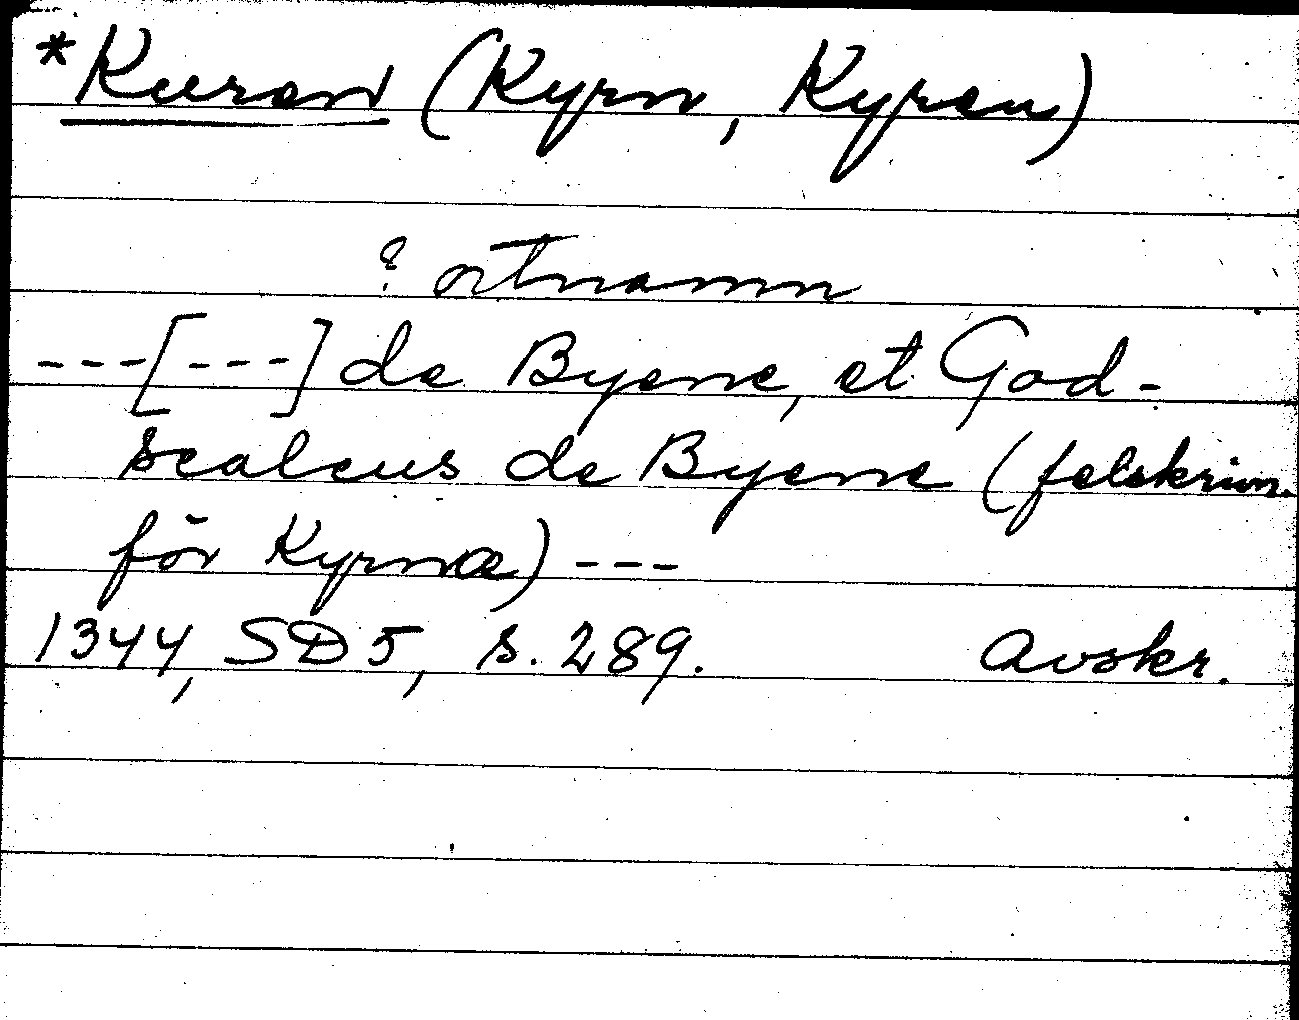 *Kuran (Kyrn, Kyren)
? ortnamn
---[---] de Byerne, et God-
scalcus de Byerne (felskrivn.
för Kyrnæ) ---
1344, SD 5, s. 289. Avskr.